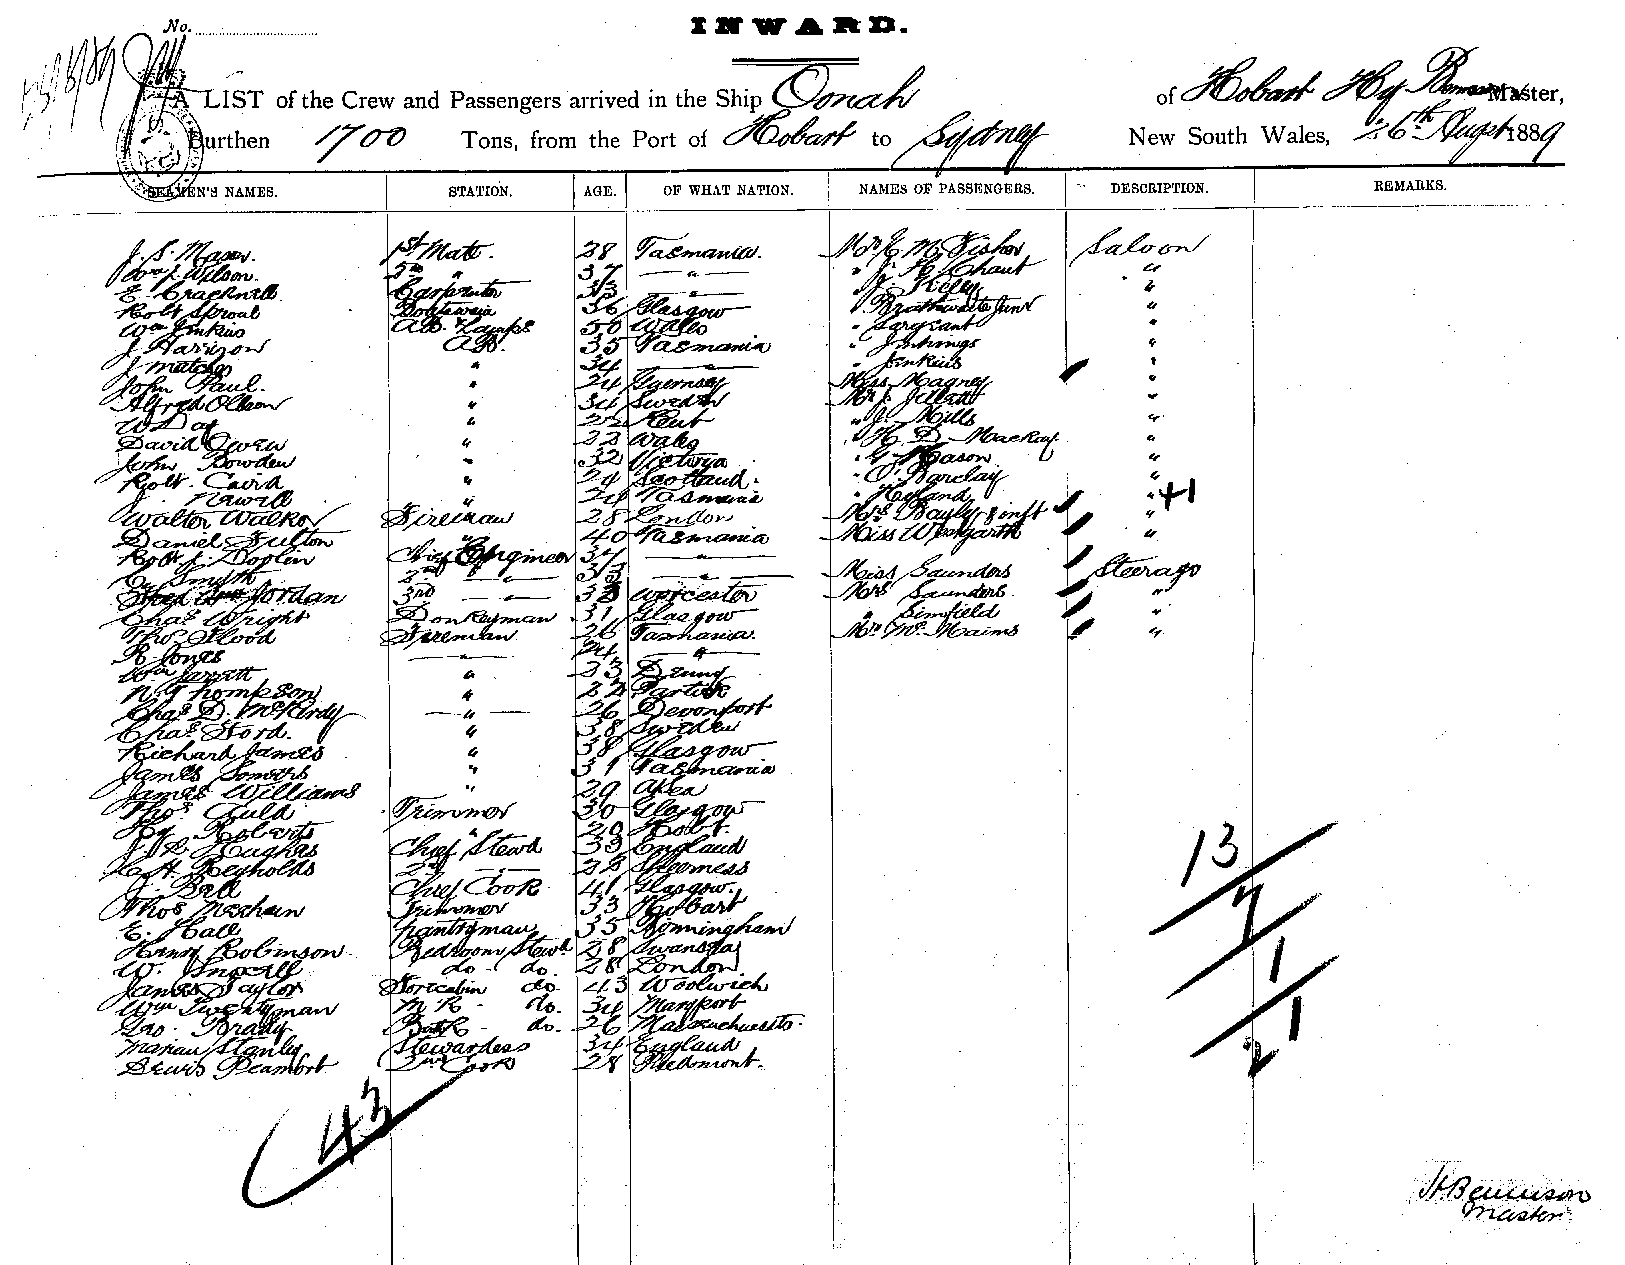 No.
INWARD.
A LIST of the Crew and Passengers arrived in the Ship Oonah of Hobart Hy Bennison Master,
Burthen 1700 Tons, from the Port of Hobart to Sydney New South Wales, 26th Augst 1889
SEAMEN'S NAMES. STATION. AGE. OF WHAT NATION. NAMES OF PASSENGERS. DESCRIPTION. REMARKS.
J. S. Mason. 1st Mate. 28 Tasmania. Saloon
Wm J. Wilson. 2nd " 37 — " — " "
E. Cracknell Carpenter 33 — " — " Kelly "
Robt Sproul 36 Glasgow " Brathwaite Junr "
Wm Jenkins A.B. Lamps 50 Wales " Sargeant "
J Harrison A.B. 35 Tasmania " Jennings "
J " 34 — " — " Jenkins "
John Paul. " 24 Guernsey Miss Magney "
Alfred Ollson " 34 Sweden Mr J. "
W Day " 22 Kent " J. Mills "
David Owen " 22 Wales " H. D. Mackay "
John Bowden " 32 Victoria " G Mason "
Robt. Caird " 24 Scotland. " Barclay "
J. Newill " 24 Tasmania " Hyland " +1
Walter Walker Fireman 28 London Mrs Bayly & inft "
Daniel Fulton " 40 Tasmania Miss Westgarth "
Robt J. Doplin Chief Engineer 37 — " —
Smyth 2nd — " — 33 — " — Miss Saunders Steerage
Jordan 3rd — " — 33 Worcester Mrs Saunders "
Chas Wright Donkeyman 31 Glasgow " Simfield "
Thos Flood Fireman 26 Tasmania. "
R Jones — " — 24 — " —
Wm Jarratt " 23
N. Thompson " 22 Partick
Chas D. McKirdy — " — 26 Devonport
Chas Ford. " 38 Sweden
Richard James " 38 Glasgow
James Somers " 31 Tasmania
James Williams " 29
Thos Auld Trimmer 30 Glasgow
Hy Roberts " 20 Hobt.
Hughes Chief Stewd 33 England
Reynolds 2nd — " — 22 Sheerness
J. Bell Chief Cook 41 Glasgow.
Thos Meehan Trimmer 33 Hobart
E. Hall Pantryman 35 Birmingham
Henry Robinson Bedroom Stewd 28 Swansea
W. do. do. 28 London
James Taylor Forecabin do. 43 Woolwich
Wm Twentyman M. R. do. 34 Maryport
Geo. Brady do. 26 Massachusetts.
Marian Stanley Stewardess 34 England
2nd Cook 28 Piedmont.
43
13
7
1
1
2
H Bennison
Master